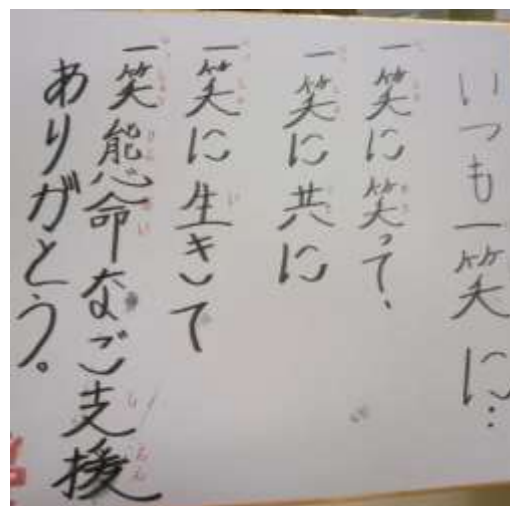 いつも一笑に…
一笑に笑って、
一笑に共に
一笑に生きて
一笑懸命なご支援
ありがとう。